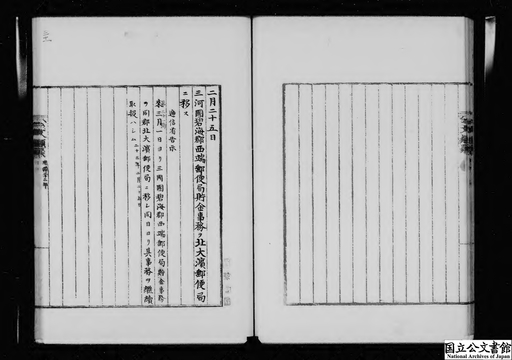 二月二十五日
三河國碧海郡西端郵便局貯金事務ヲ北大濱郵便局
ニ移ス
遞信省告示
來三月一日ヨリ三河國碧海郡西端郵便局貯金事務
ヲ同郡北大濱郵便局ニ移シ同日ヨリ其事務ヲ繼續
取扱ハシム
公文類聚
国立公文書館
National Archives of Japan